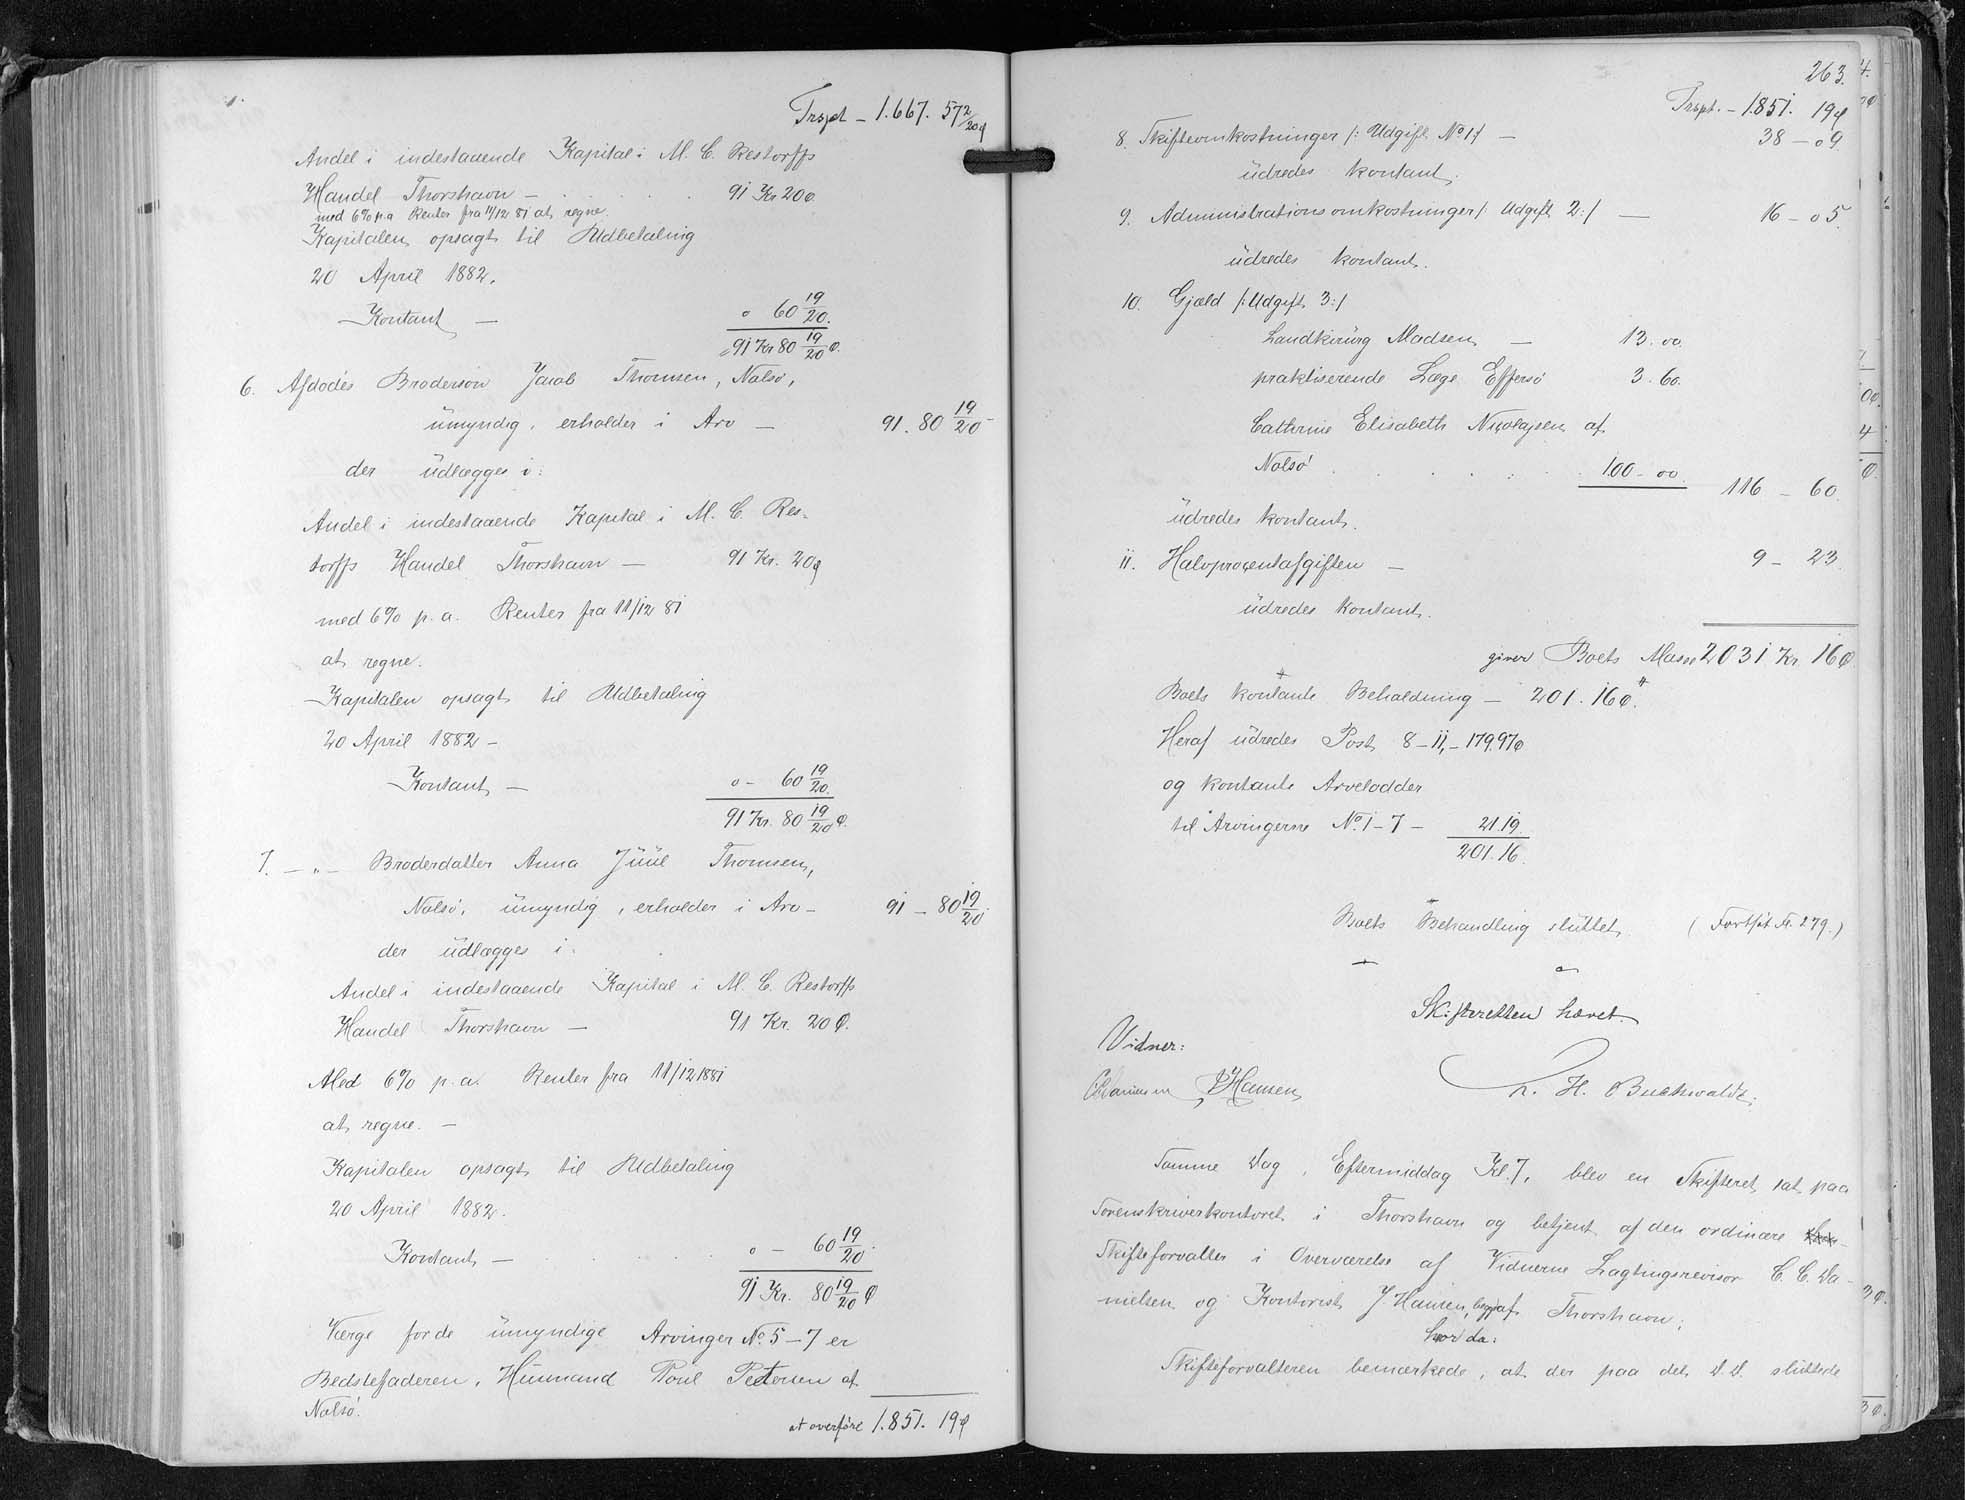 Trspt – 1.667. 57 2/20 ø
Andel i indestaaende Kapital i M. C. Restorffs
Handel Thorshavn – 91 Kr 20 ø.
med 6% p.a Renter fra 11/12 81 at regne.
Kapitalen opsagt til Udbetaling
20 April 1882.
Kontant – 0 60 19/20.
91 Kr 80 19/20 ø.
6. Afdødes Brodersøn Jacob Thomsen, Nolsø,
ümyndig, erholder i Arv – 91. 80 19/20
der üdlægges i:
Andel i indestaaende Kapital i M. C. Res-
torffs Handel Thorshavn – 91 Kr. 20 ø
med 6% p. a. Renter fra 11/12 81
at regne.
Kapitalen opsagt til Udbetaling
20 April 1882 –
Kontant – 0 – 60 19/20.
91 Kr. 80 19/20 ø.
7. – " – Broderdatter Anna Jüül Thomsen,
Nolsø, ümyndig, erholder i Arv – 91 – 80 19/20.
der üdlægges i:
Andel i indestaaende Kapital i M. C. Restorffs
Handel Thorshavn – 91 Kr. 20 ø.
Med 6% p. a. Renter fra 11/12 1881
at regne. –
Kapitalen opsagt til Udbetaling
20 April 1882.
Kontant – 0 – 60 19/20.
91 Kr. 80 19/20 ø
Værge for de ümyndige Arvinger No. 5 – 7 er
Bedstefaderen, Hüusmand Poul Petersen af
Nolsø.
at overføre 1.851. 19 ø
263.
Trspt. – 1.851. 19 ø
8. Skifteomkostninger /: Udgift No 1 :/ – 38 – 09.
üdredes kontant.
9. Administrationsomkostninger /: Udgift 2 :/ – 16 – 05.
üdredes kontant.
10. Gjæld /: Udgift 3 :/
Landkirürg Madsen – 13. 00.
praktiserende Læge Effersø 3. 60.
Cathrine Elisabeth Nicolajsen af
Nolsø 100 – 00. 116 – 60.
üdredes kontant.
11. Halvprocentafgiften – 9 – 23.
üdredes kontant.
giver Boets Masse 2031 Kr. 16 ø
Boets kontante Behaldning – 201. 16 ø.
Heraf üdredes Post 8 – 11, – 179.97 ø
og kontante Arvelodder
til Arvingerne No. 1 – 7 – 21.19.
201.16.
Boets Behandling slüttet. (Fortsat Fr. 279.)
Skifteretten hævet.
Vidner:
CCDanielsen JHansen
L. H. Buchwaldt.
Samme Dag, Eftermiddag Kl. 7, blev en Skifteret sat paa
Sorenskriverkontoret i Thorshavn og betjent af den ordinære
Skifteforvalter i Overværelse af Vidnerne Lagtingsrevisor C. C. Da-
nielsen og Kontorist J. Hansen, begge af Thorshavn;
hvor da:
Skifteforvalteren bemærkede, at der paa det D. D. slüttede